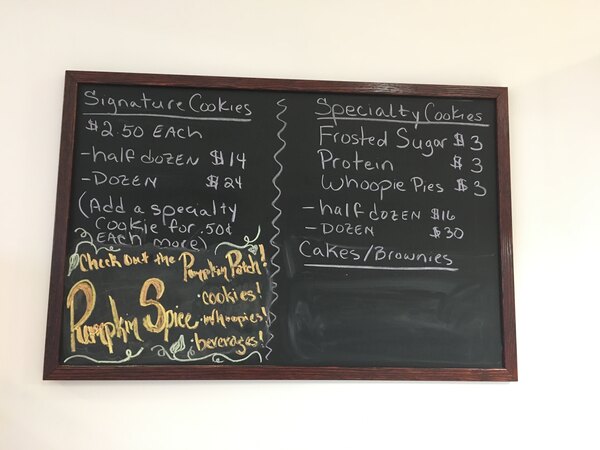 Signature Cookies
$2.50 EACH
-half dozen $14
-DOZEN $24
(Add a specialty
Cookie for .50¢
EACH more)
Check out the Pumpkin Patch!
Pumpkin Spice
·cookies!
·whoopies!
·beverages!
Specialty Cookies
Frosted Sugar $3
Protein $3
Whoopie Pies $3
-half dozen $16
-DOZEN $30
Cakes/Brownies